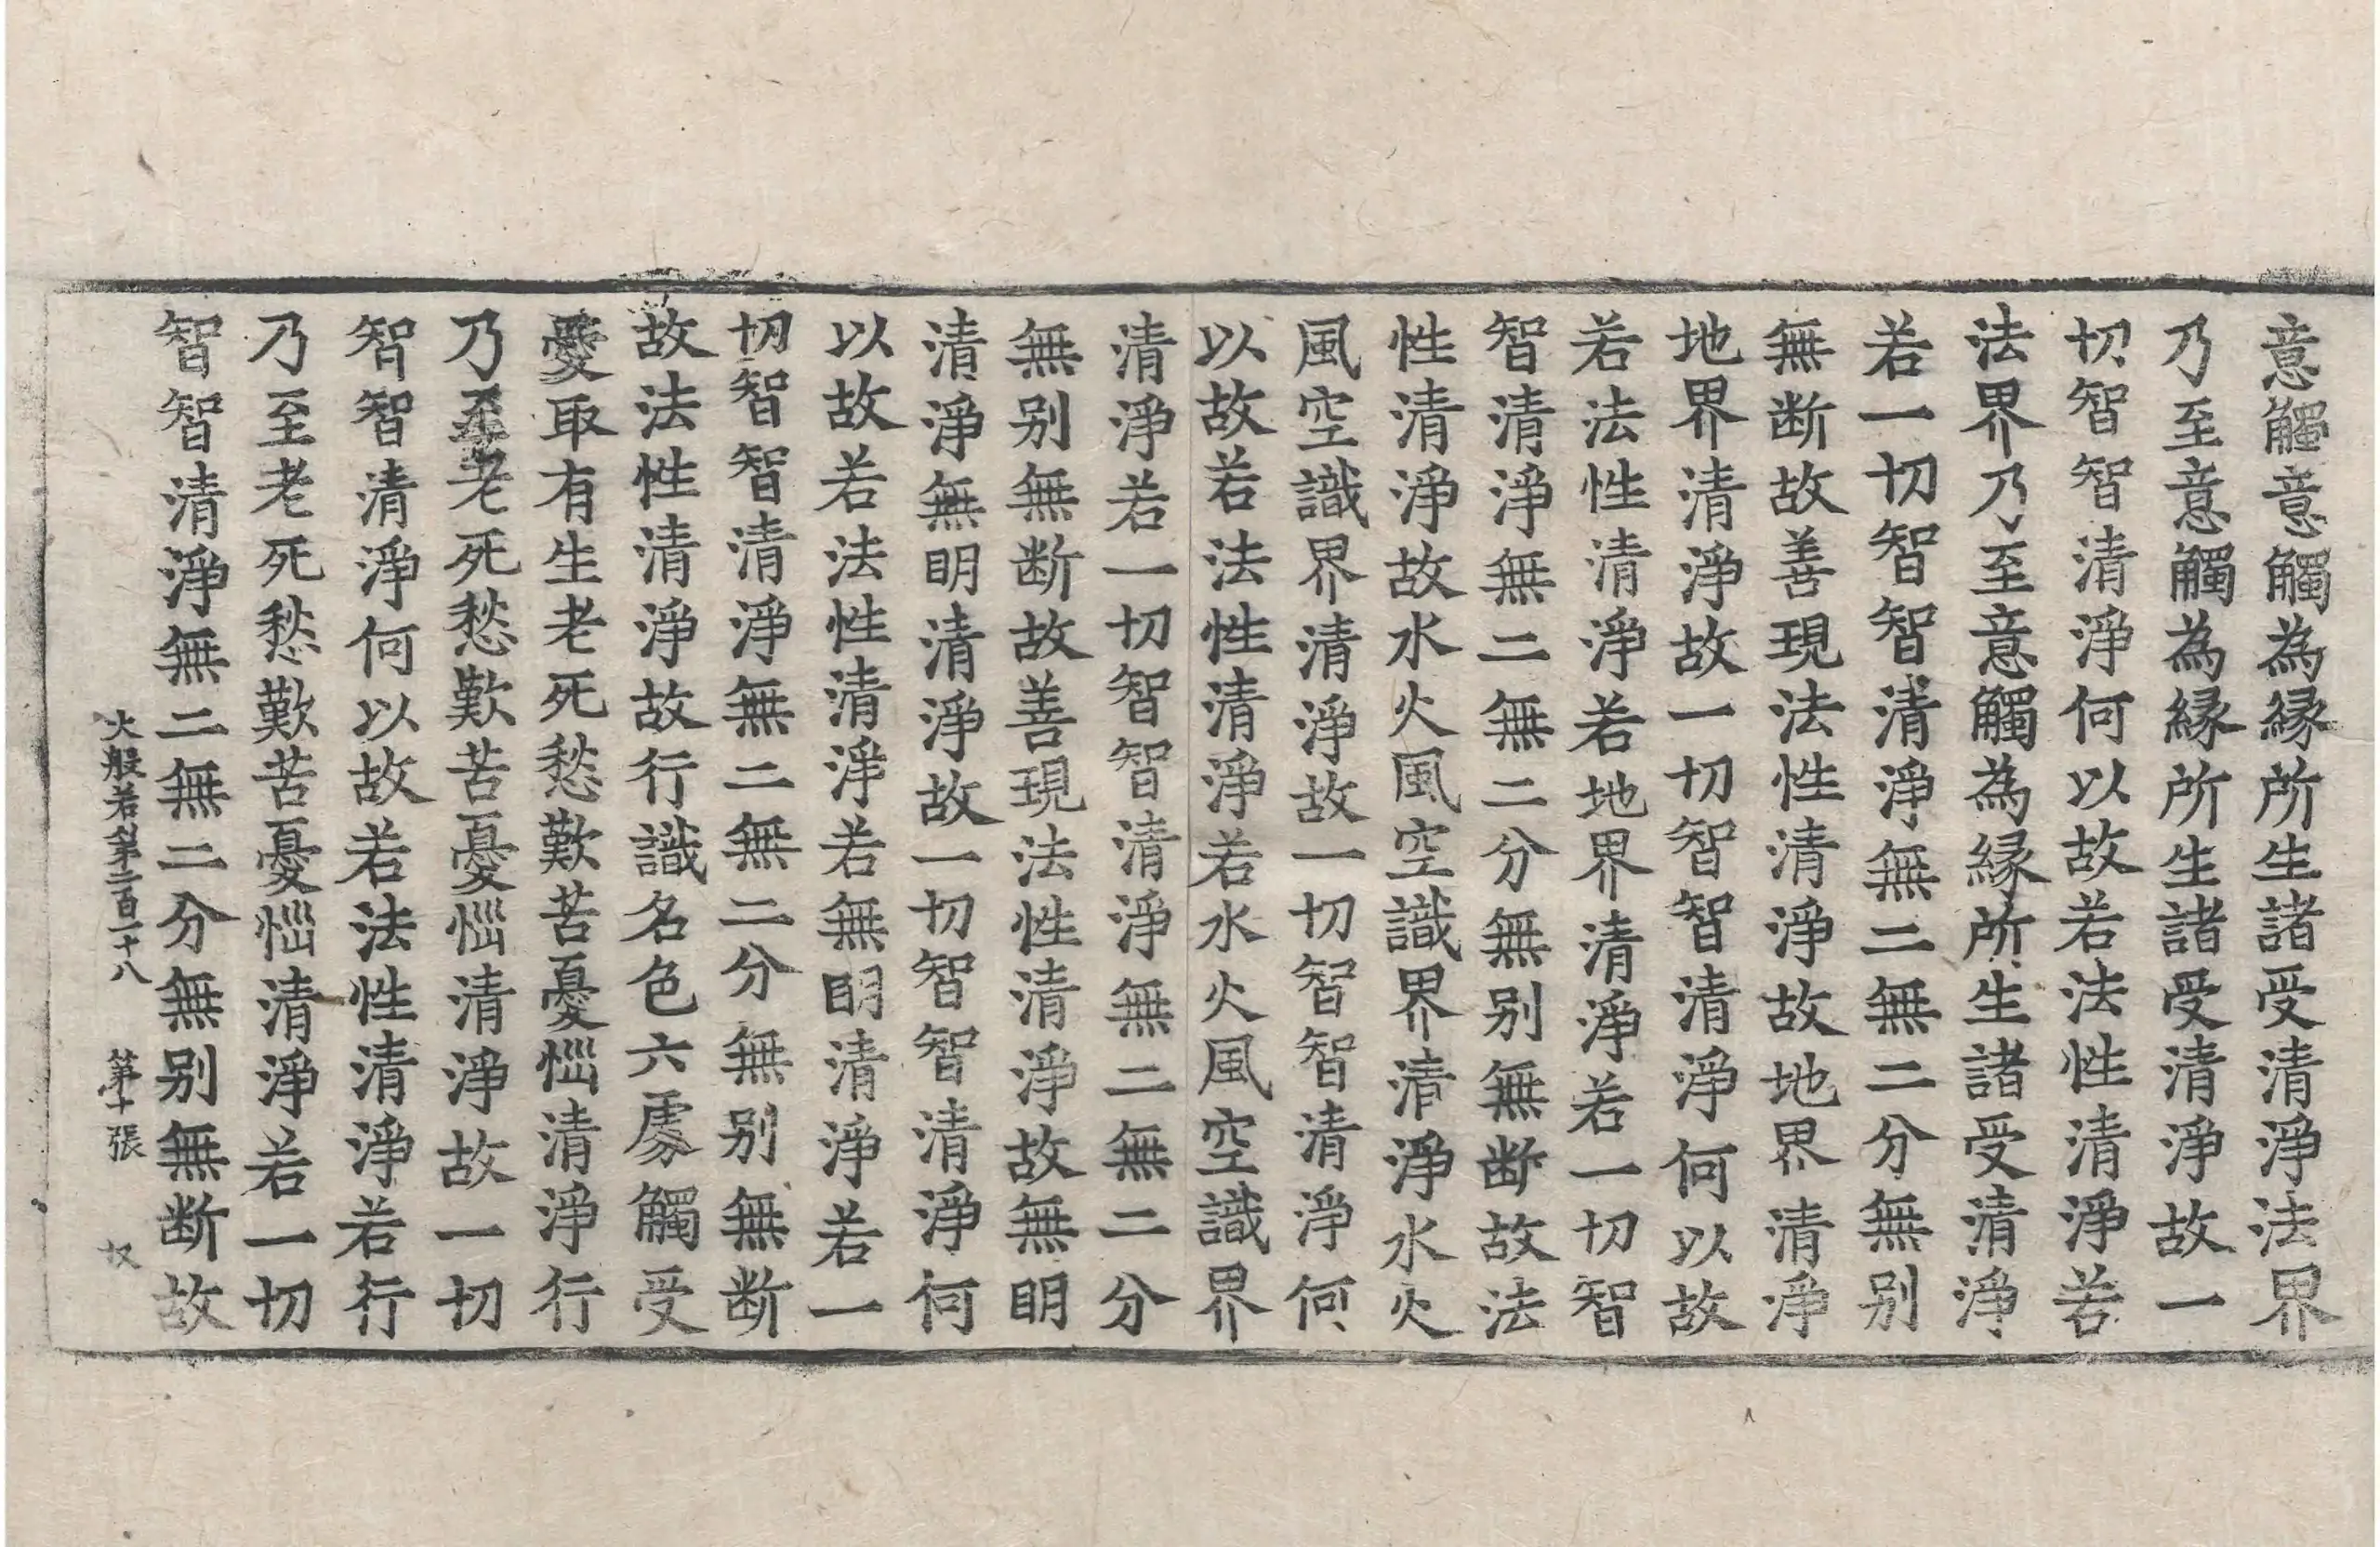 意觸意觸為縁所生諸受清淨法界
乃至意觸為縁所生諸受清淨故一
切智智清淨何以故若法性清淨若
法界乃至意觸為縁所生諸受清淨
若一切智智清淨無二無二分無别
無断故善現法性清淨故地界清淨
地界清淨故一切智智清淨何以故
若法性清淨若地界清淨若一切智
智清淨無二無二分無别無断故法
性清淨故水火風空識界清淨水火
風空識界清淨故一切智智清淨何
以故若法性清淨若水火風空識界
清淨若一切智智清淨無二無二分
無别無断故善現法性清淨故無明
清淨無明清淨故一切智智清淨何
以故若法性清淨若無明清淨若一
切智智清淨無二無二分無别無断
故法性清淨故行識名色六處觸受
愛取有生老死愁歎苦憂惱清淨行
乃至老死愁歎苦憂惱清淨故一切
智智清淨何以故若法性清淨若行
乃至老死愁歎苦憂惱清淨若一切
智智清淨無二無二分無别無断故
大般若經第二百一十八 第十張 奴